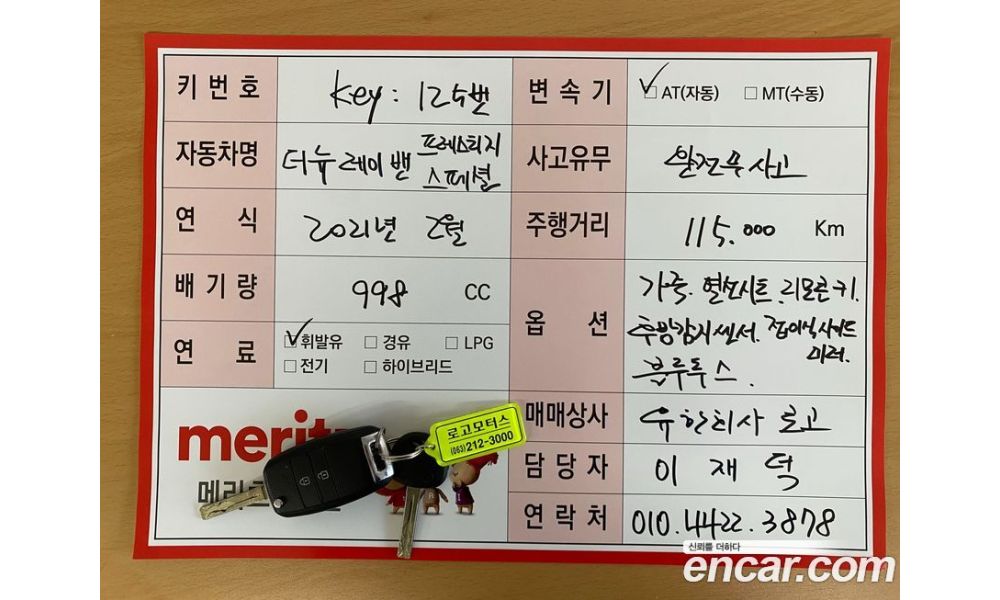 키번호 Key: 125번
변속기 AT(자동) MT(수동)
자동차명 더뉴 레이 밴 프레스티지 스페셜
사고유무 완전무사고
연 식 2021년 2월
주행거리 115.000 Km
배기량 998 CC
옵 션 가죽. 열선시트. 리모콘키.
후방감지센서. 접이식사이드
미러.
블루투스.
연 료 휘발유 경유 LPG
전기 하이브리드
매매상사 유한회사 로고
담당자 이재덕
연락처 010.4422.3878
merit
메리
로고모터스
(063)212-3000
신뢰를 더하다
encar.com